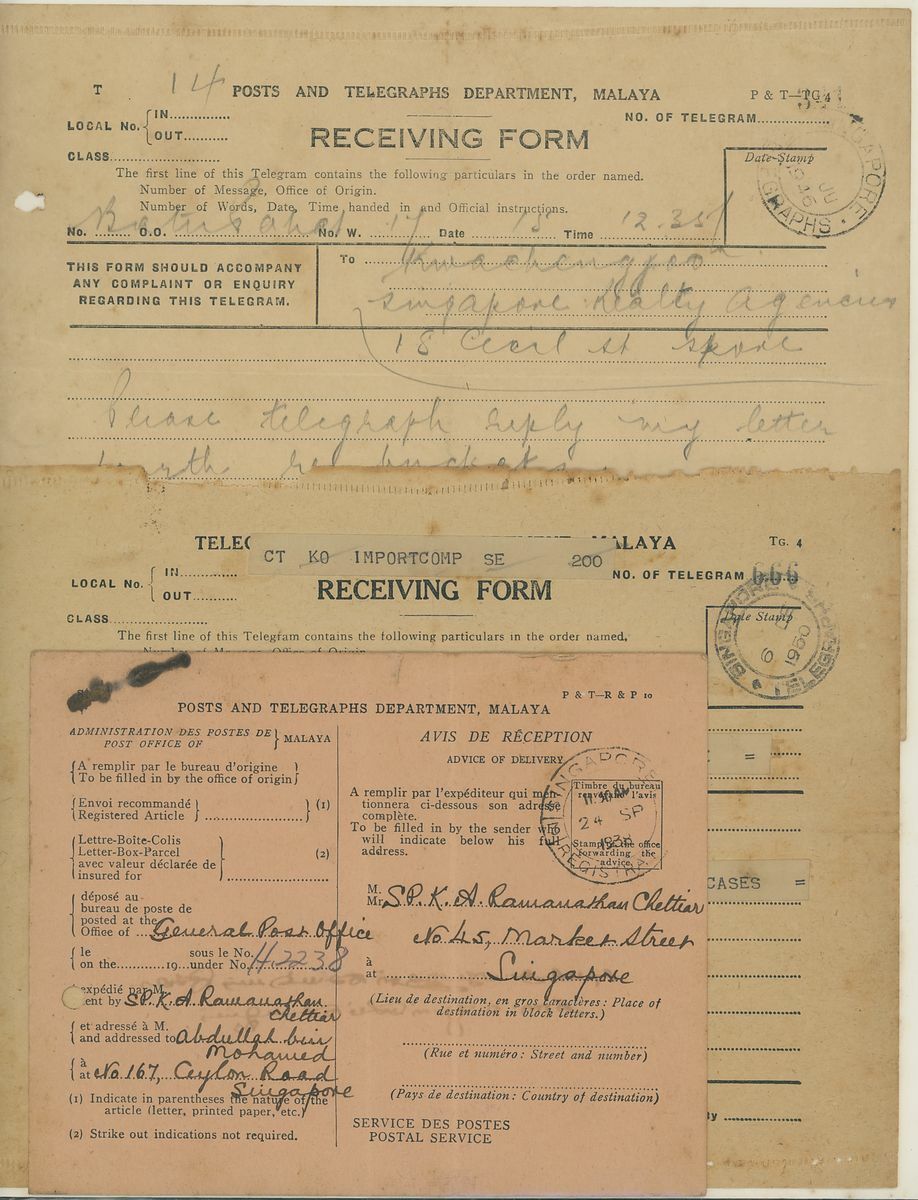 T 14 POSTS AND TELEGRAPHS DEPARTMENT, MALAYA P & T—TG. 4
LOCAL No. { IN..............
OUT..........
NO. OF TELEGRAM....................
RECEIVING FORM
CLASS......................
The first line of this Telegram contains the following particulars in the order named.
Number of Message, Office of Origin.
Number of Words, Date, Time, handed in and Official instructions.
Date-Stamp
No. O.O. No. W. 17 Date 15 Time 12.35
THIS FORM SHOULD ACCOMPANY
ANY COMPLAINT OR ENQUIRY
REGARDING THIS TELEGRAM.
To
Singapore Realty Agencies
18 Cecil st spore
Please telegraph reply my letter
TELE LAYA TG. 4
CT KO IMPORTCOMP SE 200
LOCAL No. { IN............
OUT..........
NO. OF TELEGRAM 666
RECEIVING FORM
CLASS...................
Date Stamp
SINGAPORE TELEGRAPHS
6 1950
The first line of this Telegram contains the following particulars in the order named,
Number of Message, Office of Origin
=
CASES =
By
P & T—R & P 10
POSTS AND TELEGRAPHS DEPARTMENT, MALAYA
ADMINISTRATION DES POSTES DE
POST OFFICE OF } MALAYA
{ A remplir par le bureau d'origine }
{ To be filled in by the office of origin }
{ Envoi recommandé
Registered Article } .................... (1)
{ Lettre-Boîte-Colis
Letter-Box-Parcel
avec valeur déclarée de
insured for } .................... (2)
{ déposé au
bureau de poste de
posted at the
Office of General Post Office
{ le sous le No.
on the............19...under No. 42238
expédié par M.
ent by SP. K. A. Ramanathan
Chettiar
{ et adressé à M.
and addressed to Abdullah bin
Mohamed
{ à
at No 167, Ceylon Road
Singapore
(1) Indicate in parentheses the nature of the
article (letter, printed paper, etc.)
(2) Strike out indications not required.
AVIS DE RÉCEPTION
ADVICE OF DELIVERY
SINGAPORE
REGISTRA
11.30AM
24 SP
Timbre du bureau
renvoyant l'avis
Stamp of the office
forwarding the
advice
A remplir par l'expéditeur qui men-
tionnera ci-dessous son adresse
complète.
To be filled in by the sender who
will indicate below his full
address.
M.
Mr. SP. K. A. Ramanathan Chettiar
No 45, Market Street
à
at Singapore
(Lieu de destination, en gros caractères : Place of
destination in block letters.)
(Rue et numéro : Street and number)
(Pays de destination : Country of destination)
SERVICE DES POSTES
POSTAL SERVICE